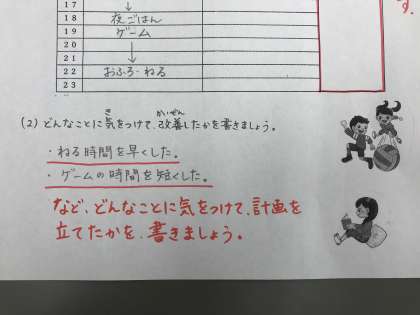 17 ↓
18 夜ごはん
19 ゲーム
20
21 ↓
22 おふろ・ねる
23
す。
(2) どんなことに気をつけて、改善したかを書きましょう。
き かいぜん
・ねる時間を早くした。
・ゲームの時間を短くした。
など、どんなことに気をつけて、計画を
立てたかを、書きましょう。